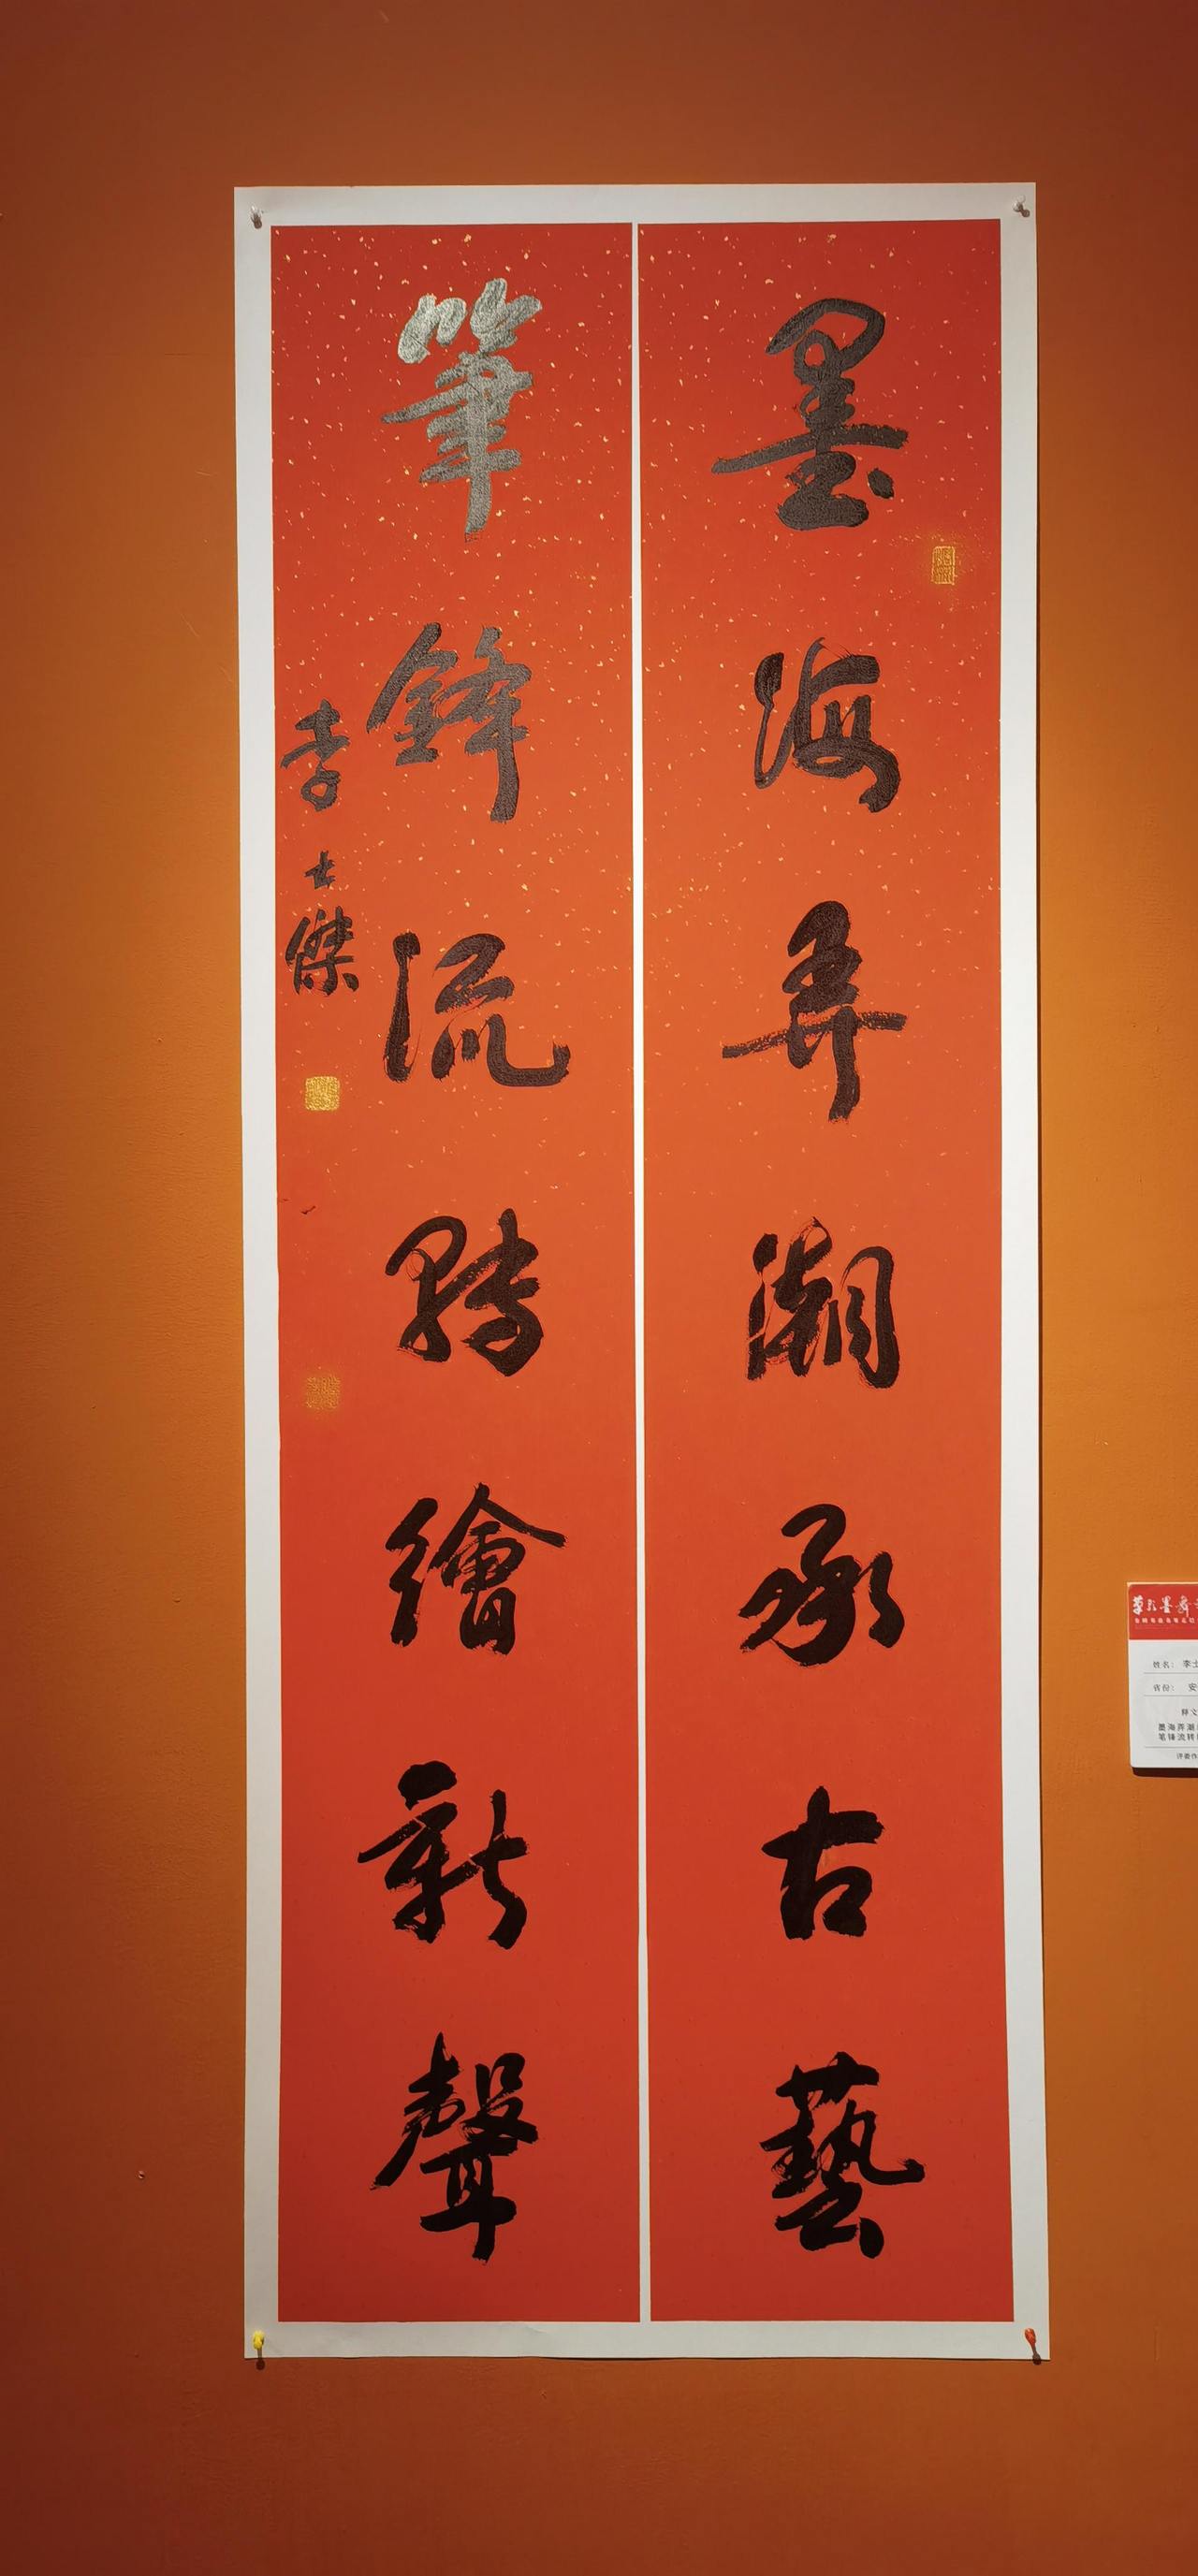 墨海弄潮承古藝
筆鋒流轉繪新聲
李士傑
姓名： 李士
省份： 安
释文
墨海弄潮
笔锋流转